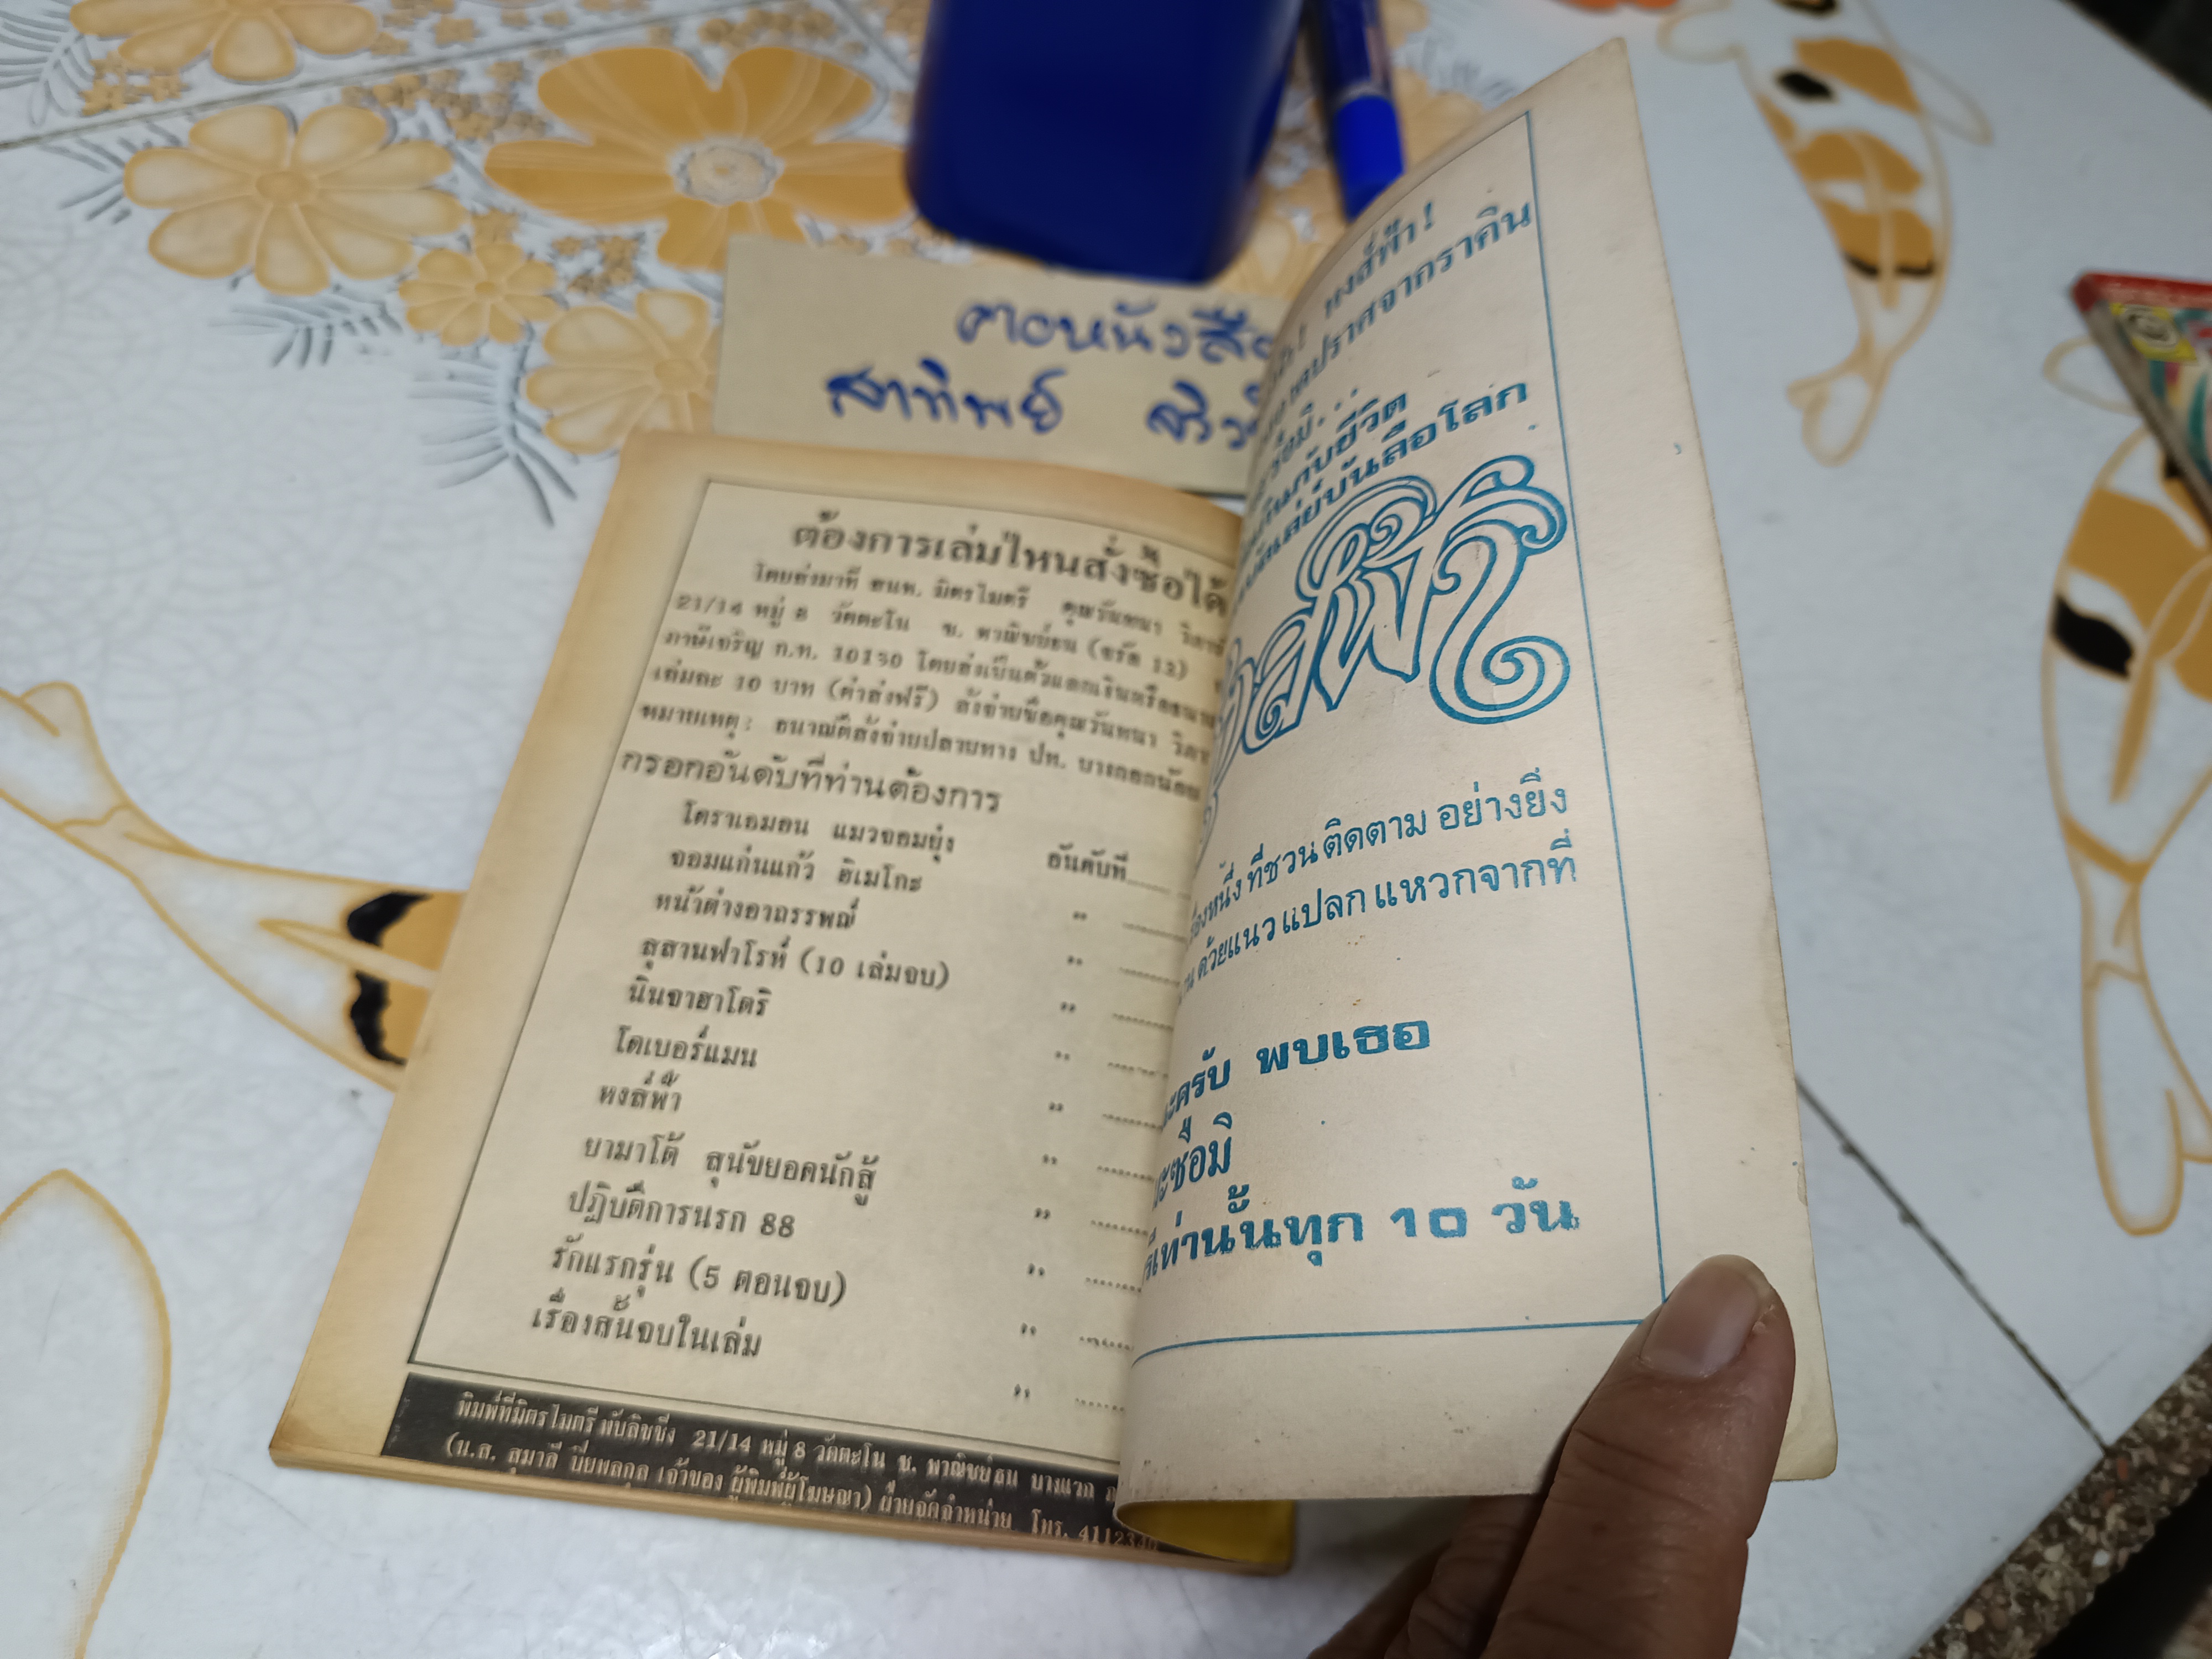 ตอหนังสือ
สาทิพย์
ต้องการเล่มไหนสั่งซื้อได้
โดยส่งมาที่ สนพ. มิตรไมตรี คุณวันทนา
21/14 หมู่ 8 วัดตะโน ซ. พาณิชย์ธน (จรัล 13)
ภาษีเจริญ ก.ท. 10130 โดยส่งเป็นตั๋วแลกเงินหรือธนาณัติ
เล่มละ 10 บาท (ค่าส่งฟรี) สั่งจ่ายชื่อคุณวันทนา
หมายเหตุ: ธนาณัติสั่งจ่ายปลายทาง ปท. บางกอกน้อย
กรอกอันดับที่ท่านต้องการ
โดราเอมอน แมวจอมยุ่ง อันดับที่........
จอมแก่นแก้ว อิเมโกะ ,, ........
หน้าต่างอาถรรพณ์ ,, ........
สุสานฟาโรห์ (10 เล่มจบ) ,, ........
นินจาฮาโตริ ,, ........
โดเบอร์แมน ,, ........
หงส์ฟ้า ,, ........
ยามาโต้ สุนัขยอดนักสู้ ,, ........
ปฏิบัติการนรก 88 ,, ........
รักแรกรุ่น (5 ตอนจบ) ,, ........
เรื่องสั้นจบในเล่ม ,, ........
พิมพ์ที่มิตรไมตรี พับลิชชิ่ง 21/14 หมู่ 8 วัดตะโน ซ. พาณิชย์ธน บางแวก
(น.ส. สุมาลี ปิยพลกุล เจ้าของ ผู้พิมพ์ผู้โฆษณา) ฝ่ายจัดจำหน่าย โทร. 4112340
หงส์ฟ้า!
ปราศจากราคิน
กับชีวิต
บันลือโลก
หงส์ฟ้า
ที่ชวนติดตาม อย่างยิ่ง
ด้วยแนวแปลก แหวกจากที่
ครับ พบเธอ
เท่านั้นทุก 10 วัน